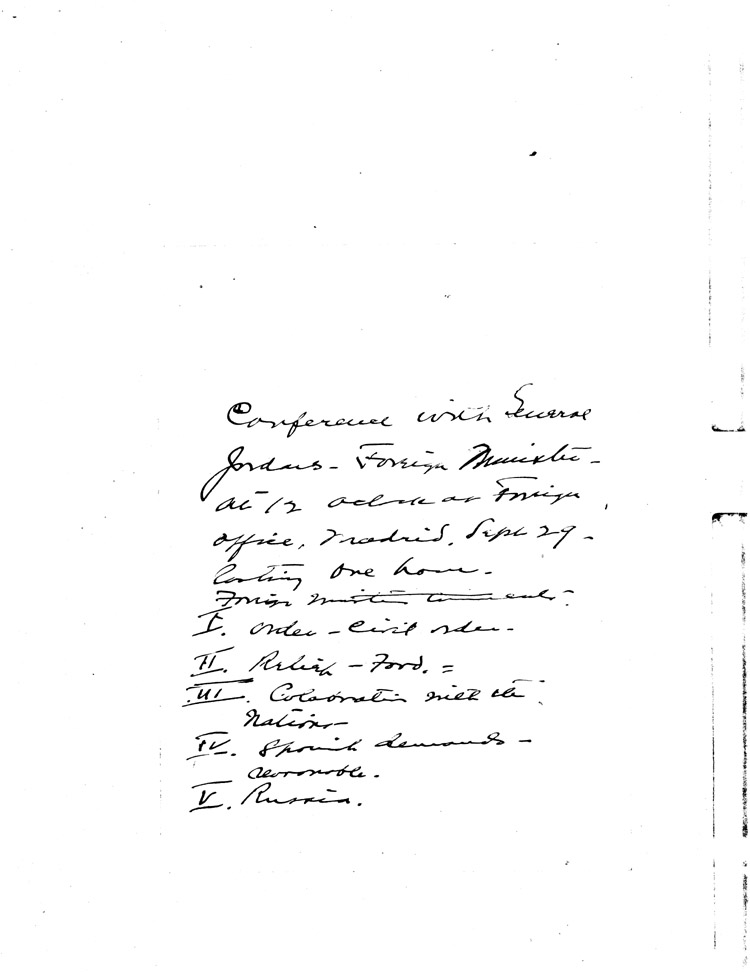 Conference with General
Jordana - Foreign Minister -
at 12 oclock at Foreign
office, Madrid, Sept 29 -
lasting one hour -
Foreign Minister
I. Order - Civil order -
II. Relief - Food. =
III. Colaboration with the
Nations -
IV. Spanish demands -
reasonable.
V. Russia.